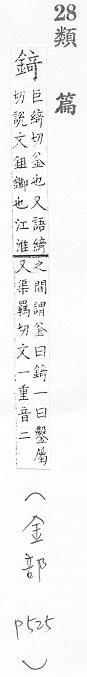 28
類篇
錡
巨綺切釜也又語綺
切說文鉏鋤也江淮
之間謂釜曰錡一曰鑿屬
又渠羈切文一重音二
(金部 p525)